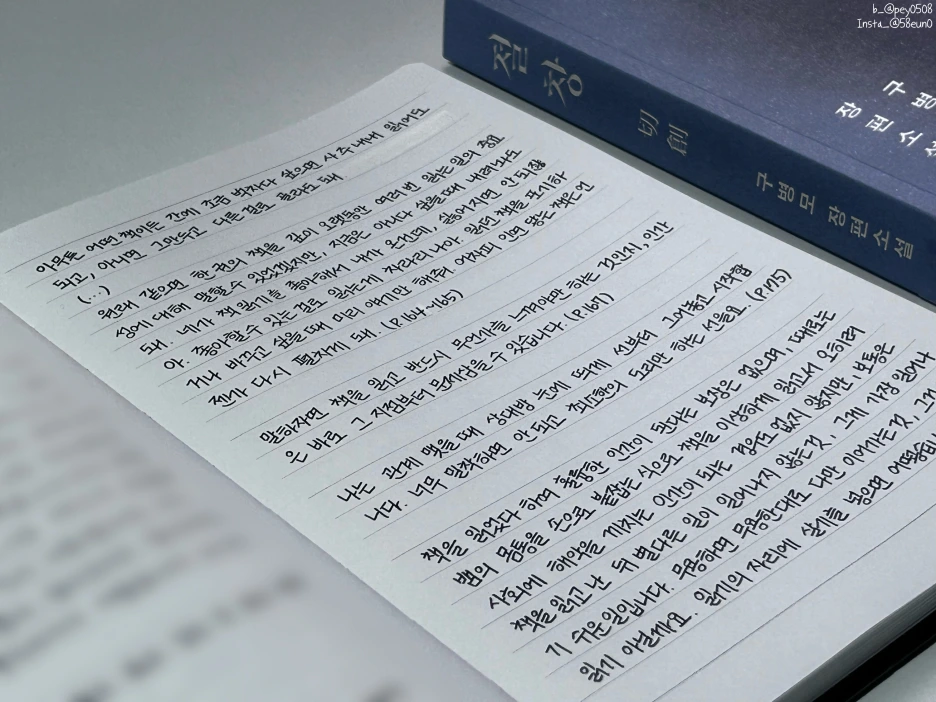 b_@pey0508
Insta_@58eun0
절창
切創
구병모 장편소설
구병
장편소설
아무튼 어떤 책이든 간에 조금 벅차다 싶으면 사흘 내내 읽어도
되고, 아니면 그만두고 다른 걸로 골라도 돼
(...)
원래 같으면 한 권의 책을 깊이 오랫동안 여러 번 읽는 일의 중요
성에 대해 말할 수 있었겠지만, 지금은 아니다 싶을 때 내려놔도
돼. 네가 책 읽기를 좋아해서 내가 온 건데, 싫어지면 안 되잖
아. 좋아할 수 있는 걸로 읽는 게 차라리 나아. 읽던 책을 포기하
거나 바꾸고 싶을 때 미리 얘기만 해줘. 어차피 인연 닿는 책은 언
젠가 다시 펼치게 돼. (P.164~165)
말하자면 책을 읽고 반드시 무언가를 느껴야만 하는 것인지, 인간
은 바로 그 지점부터 문제삼을 수 있습니다. (P.167)
나는 관계 맺을 때 상대방 눈에 띄게 선부터 그어놓고 시작합
니다. 너무 말랑하면 안 되고 최소한의 도리만 하는 선을요. (P.175)
책을 읽었다 하여 훌륭한 인간이 된다는 보장은 없으며, 때로는
뱀의 몸통을 손으로 붙잡는 식으로 책을 이상하게 읽고서 오히려
사회에 해악을 끼치는 인간이 되는 경우도 없지 않지만, 보통은
책을 읽고 난 뒤 별다른 일이 일어나지 않는 것, 그게 가장 일어나
기 쉬운 일입니다. 무용하면 무용한 대로 다만 이어가는 것, 그저
읽기 아닐까요. 읽기의 자리에 살기를 넣으면 어떻습니